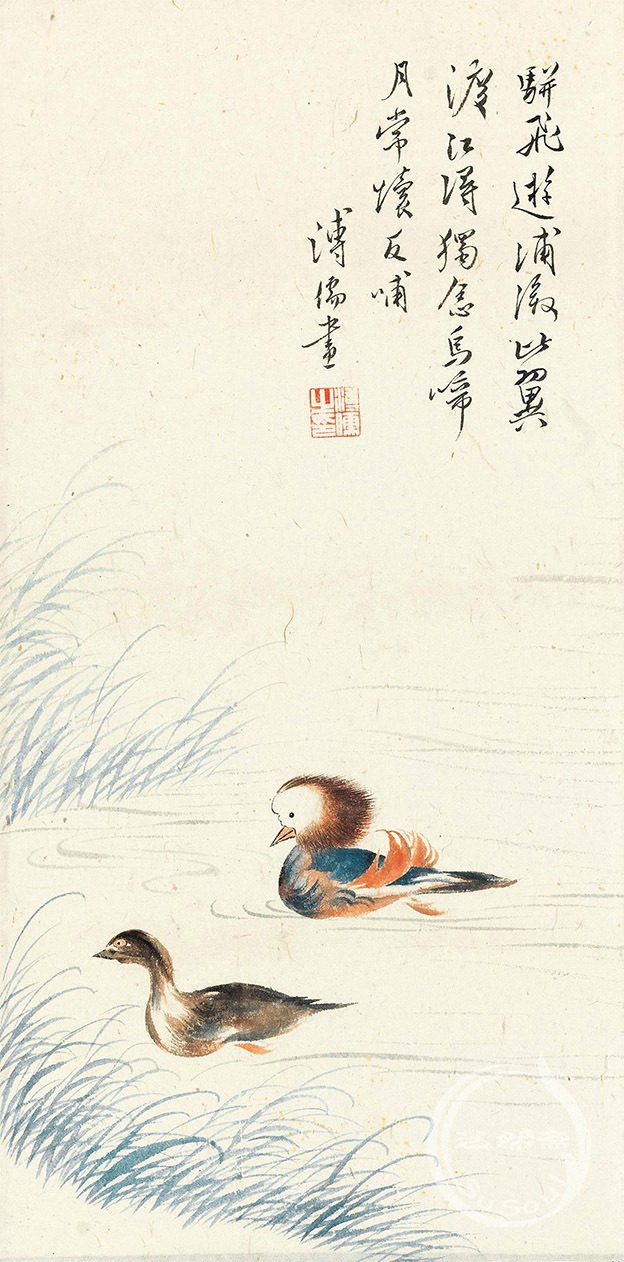 駢飛遊浦漵比翼
渡江潯獨念烏啼
月常懷反哺
溥儒畫